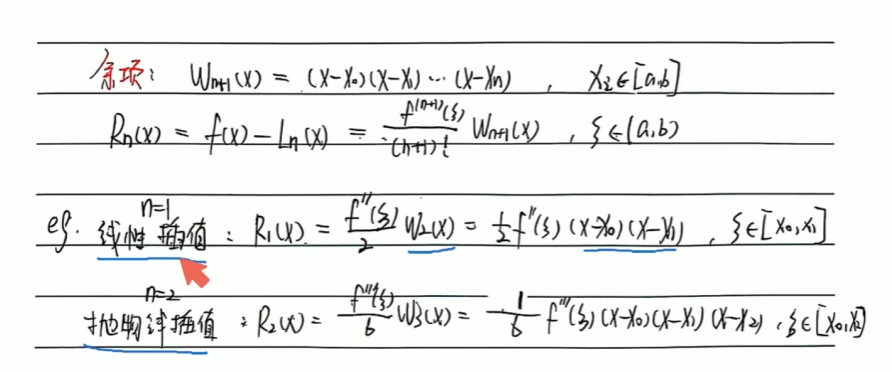 余项： Wn+1(x) = (x-x₀)(x-x₁)…(x-xn) , xᵢ∈[a,b]
Rn(x) = f(x) - Ln(x) = f⁽ⁿ⁺¹⁾(ξ)/(n+1)! Wn+1(x) , ξ∈(a,b)
n=1
eg. 线性插值 : R₁(x) = f''(ξ)/2 W₂(x) = 1/2 f''(ξ)(x-x₀)(x-x₁) , ξ∈[x₀,x₁]
n=2
抛物线插值 : R₂(x) = f'''(ξ)/6 W₃(x) = 1/6 f'''(ξ)(x-x₀)(x-x₁)(x-x₂) , ξ∈[x₀,x₂]